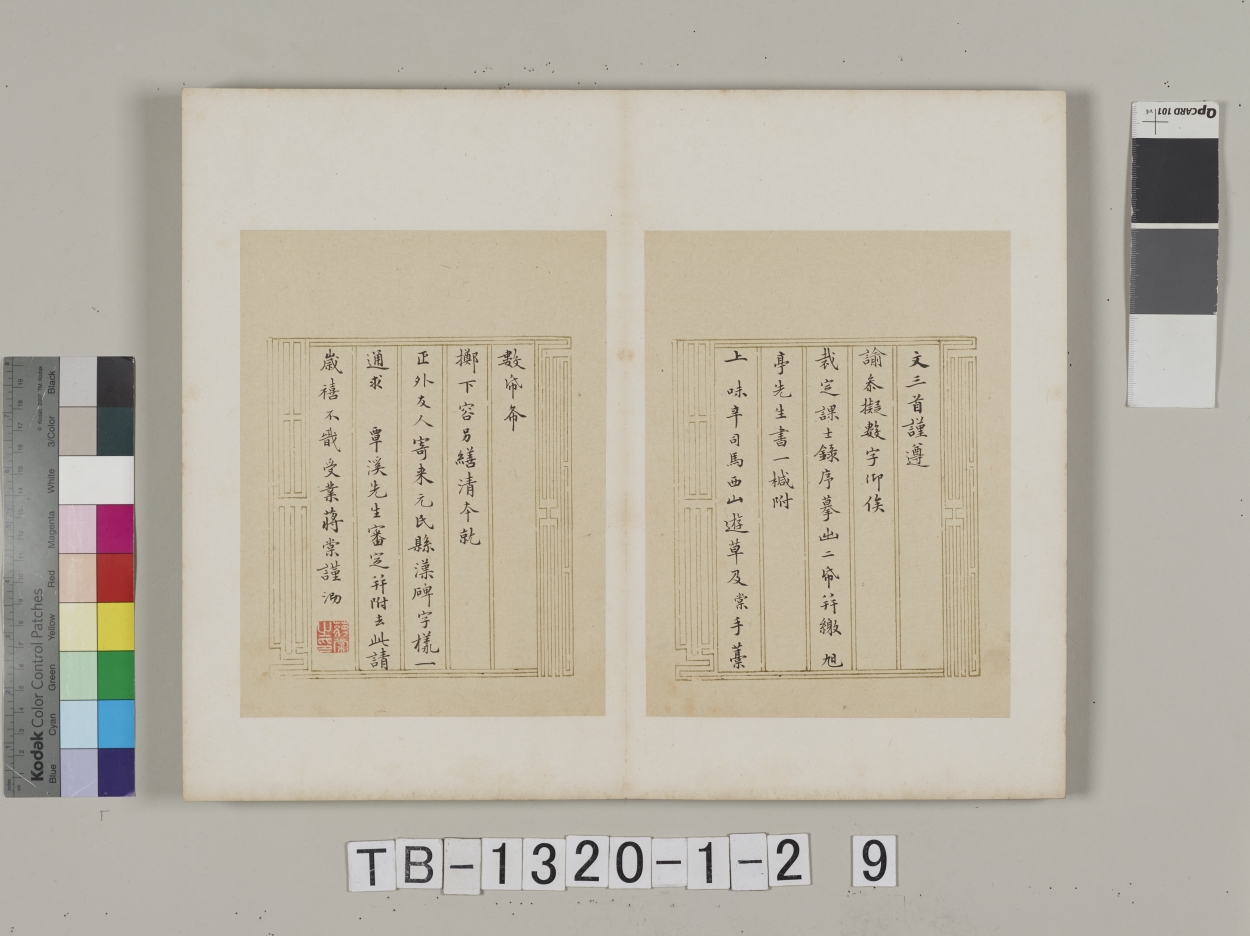 文三首謹遵
諭忝擬數字仰俟
裁定課士錄序摹出二帋并繳 旭
亭先生書一椷附
上 味辛司馬西山遊草及棠手藁
數帋希
擲下容另繕清本就
正外友人寄来元氏縣漢碑字樣一
通求 覃溪先生審定并附去此請
歲禧不戩受業蔣棠謹泐
TB-1320-1-2 9
QpCARD 101
Kodak Color Control Patches
Blue Cyan Green Yellow Red Magenta White 3/Color Black